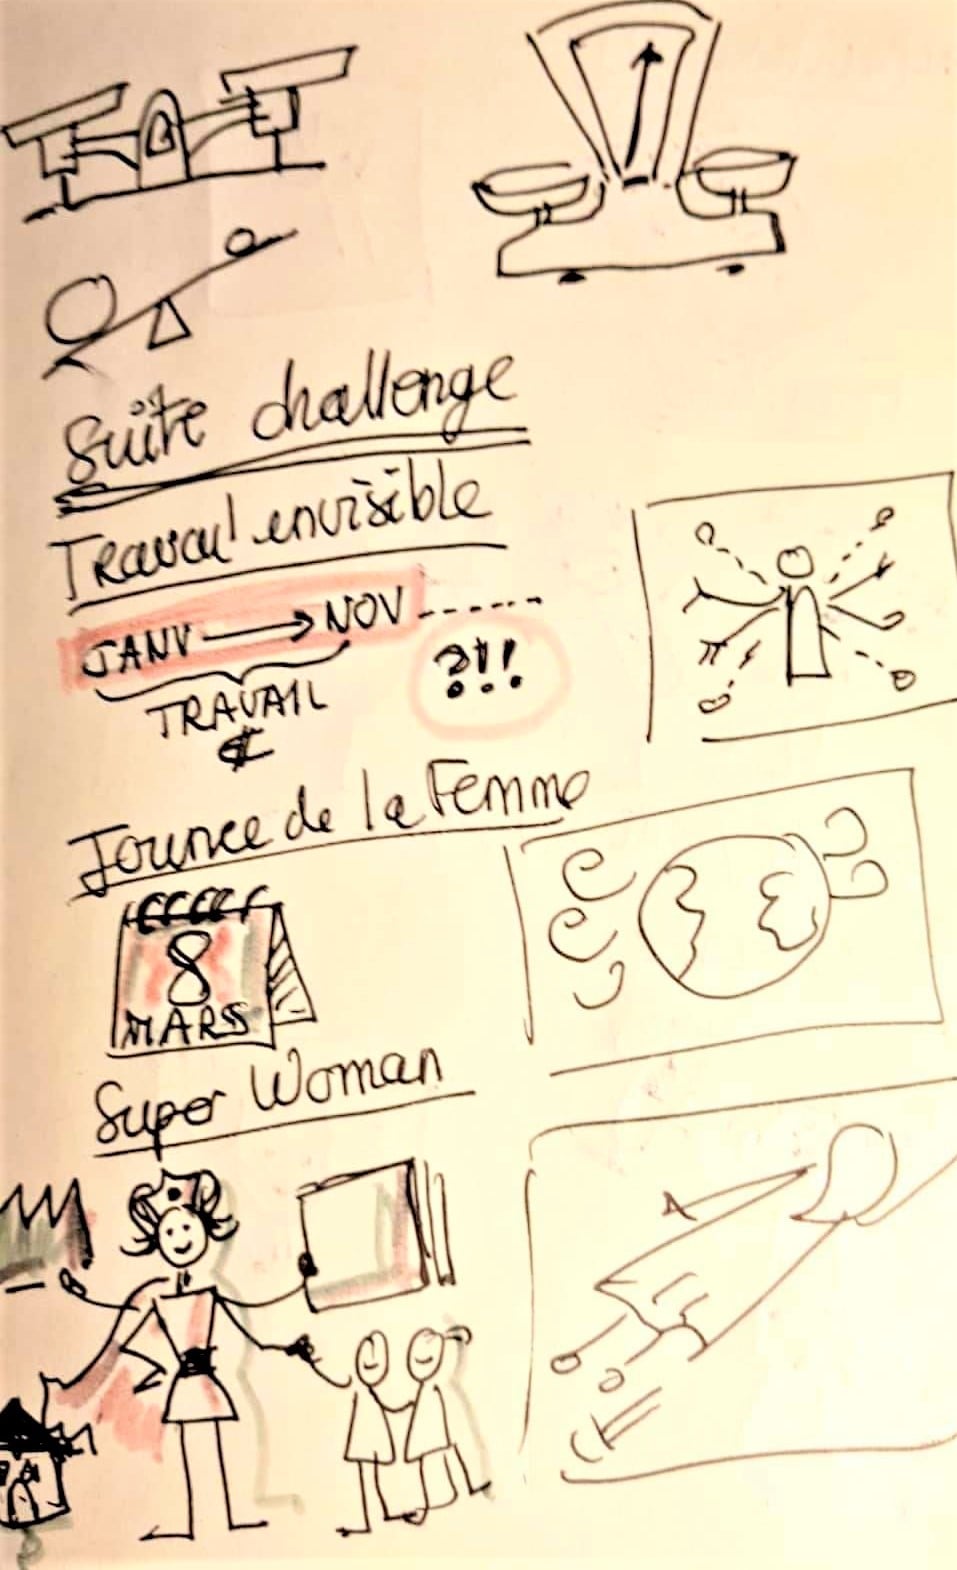 Suite challenge
Travail invisible
JANV → NOV ------
TRAVAIL
?!!
€
Journee de la Femme
8
MARS
Super Woman